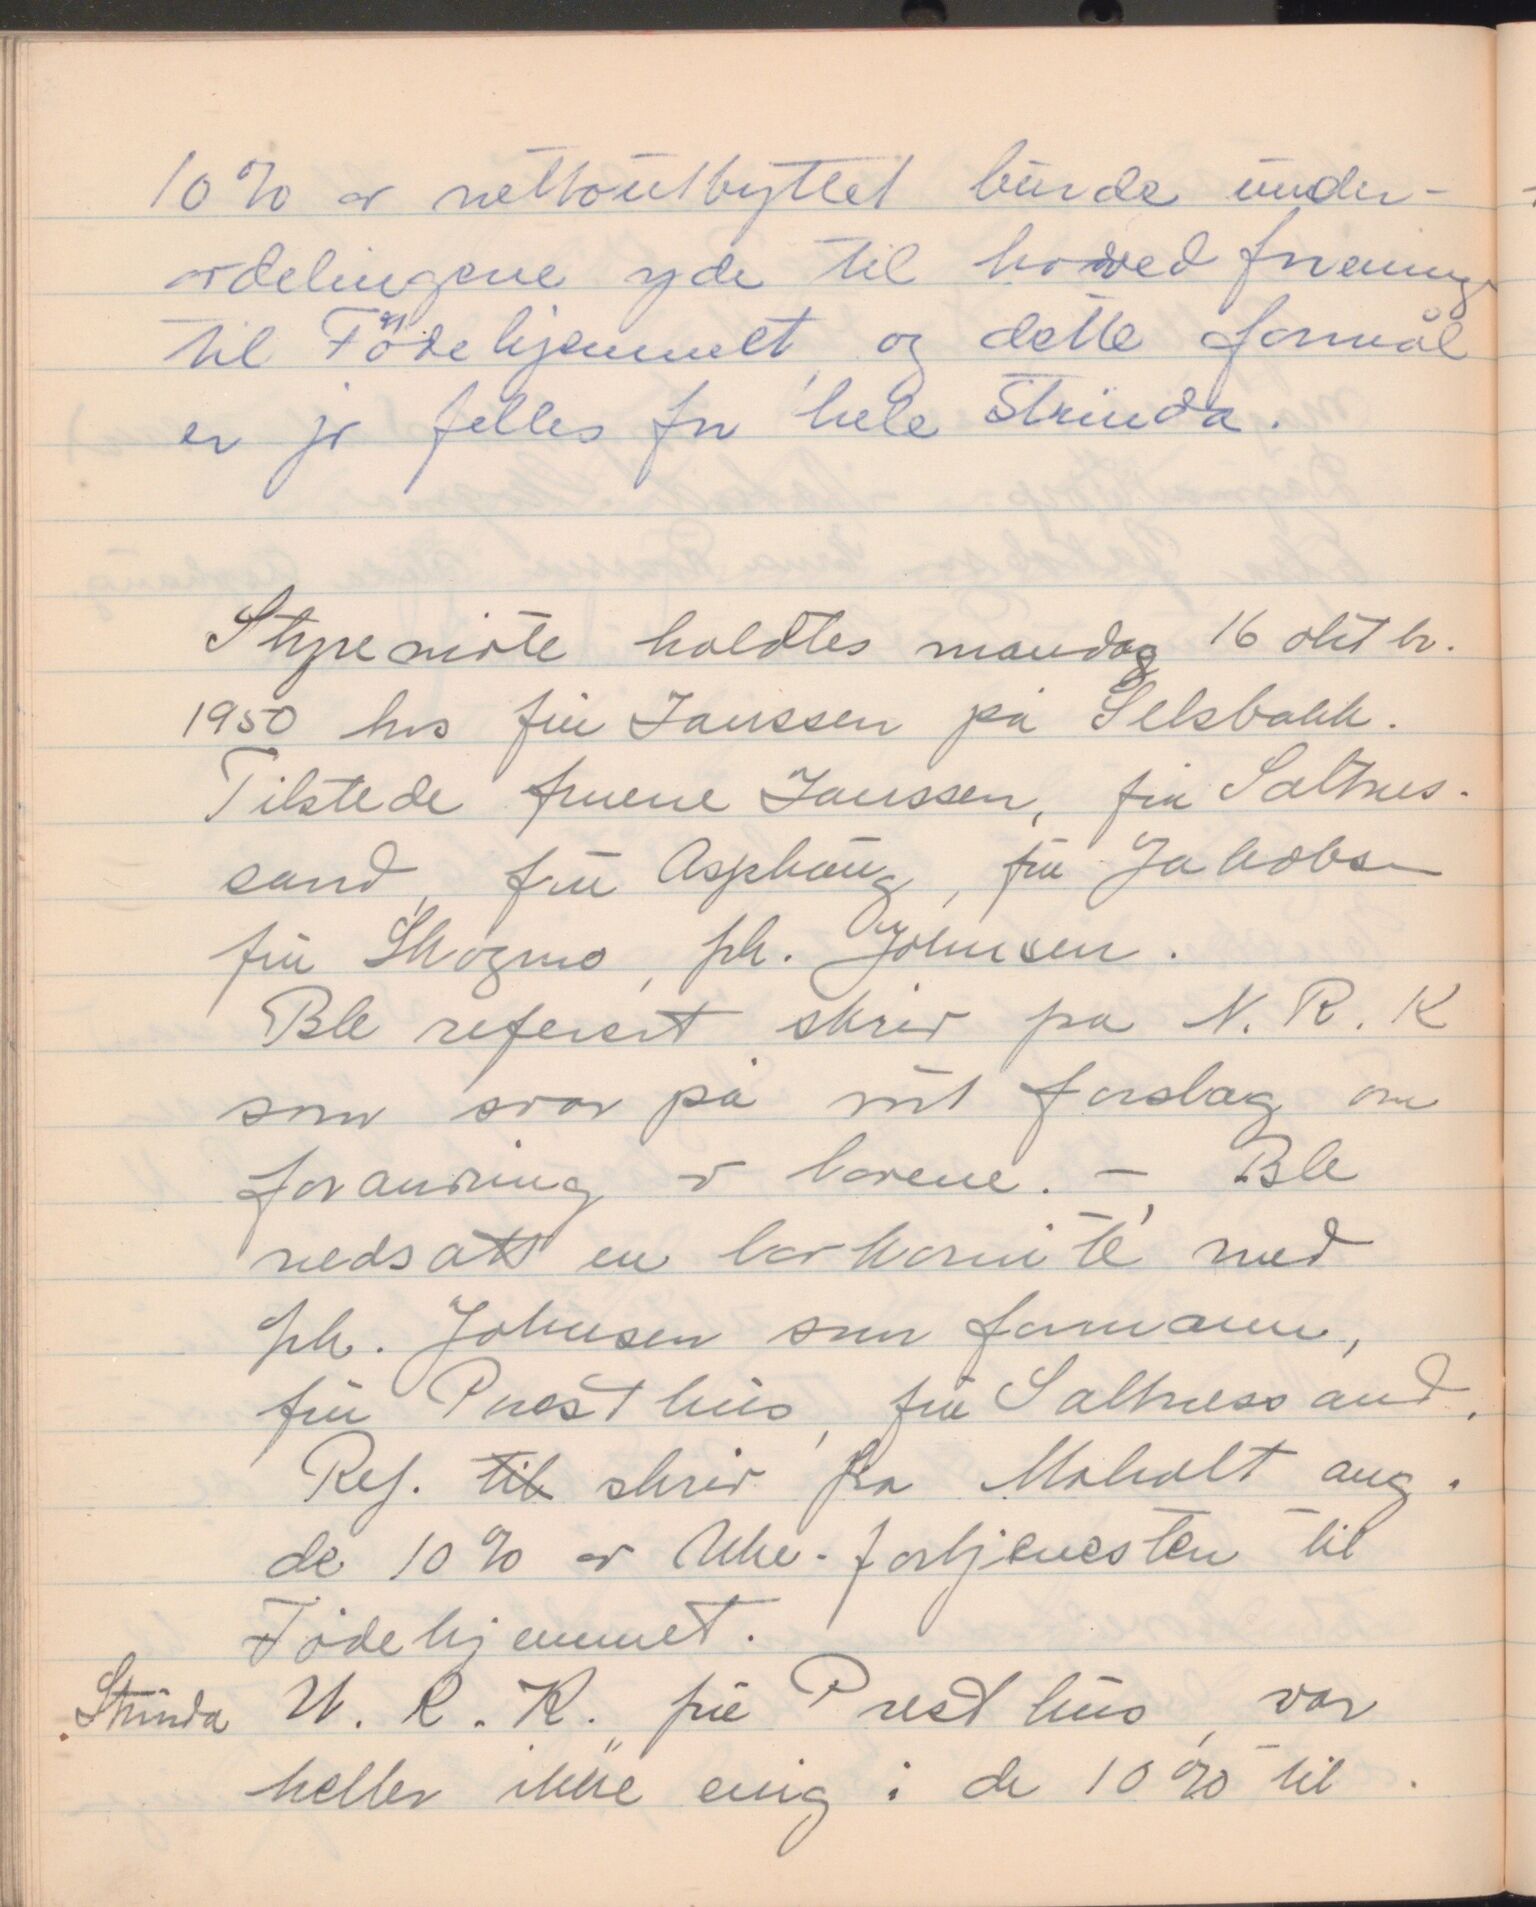 10% av nettoutbyttet burde under-
avdelingene yde til hovedforening
til Fødehjemmet, og dette formål
er jo felles for hele Strinda.
Styremøte holdtes mandag 16 oktbr.
1950 hos fru Janssen på Selsbakk.
Tilstede fruene Janssen, fru Saltnes-
sand, fru Asphaug, fru Jakobsen
fru Skogmo, frk. Johnsen.
Ble referert skriv fra N. R. K
som svar på vårt forslag om
forandring av lovene. - Ble
nedsatt en lovkomité med
frk. Johnsen som formann,
fru Presthus, fru Saltnessand.
Ref. til skriv fra Moholt ang.
de 10% av Uke-fortjenesten til
Fødehjemmet.
Strinda U. R. K. fru Presthus, var
heller ikke enig i de 10% til